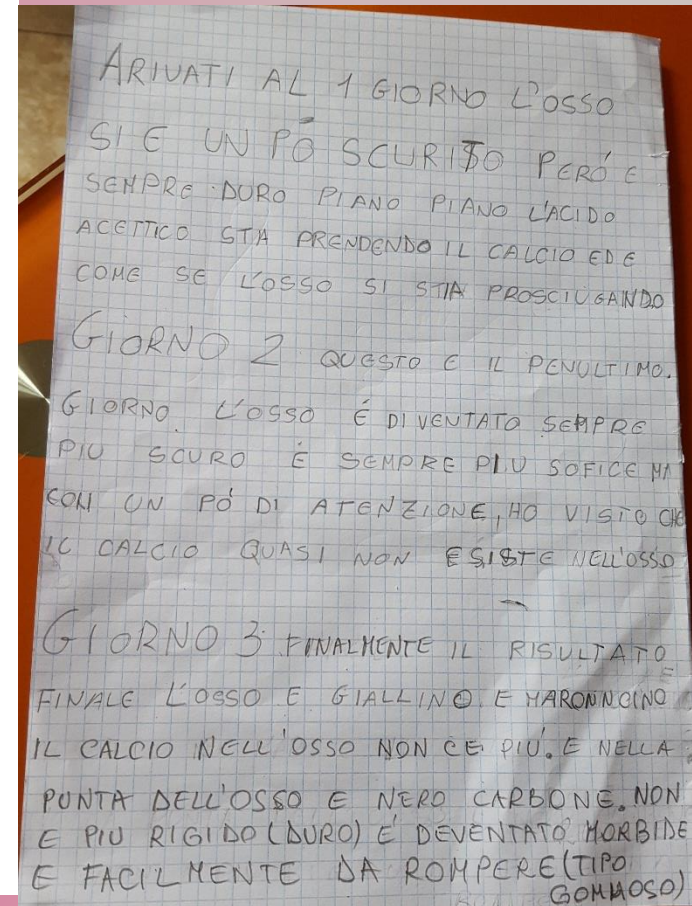 ARIVATI AL 1 GIORNO L'OSSO
SI E UN PÓ SCURITO PERÓ E
SEMPRE DURO PIANO PIANO L'ACIDO
ACETTICO STA PRENDENDO IL CALCIO ED E
COME SE L'OSSO SI STIA PROSCIUGANDO
GIORNO 2 QUESTO E IL PENULTIMO.
GIORNO. L'OSSO É DIVENTATO SEMPRE
PIU SCURO É SEMPRE PIU SOFICE MA
CON UN PÓ DI ATENZIONE, HO VISTO CHE
IL CALCIO QUASI NON ESISTE NELL'OSSO
GIORNO 3: FINALMENTE IL RISULTATO
FINALE L'OSSO E GIALLINO E MARONNCINO
IL CALCIO NELL'OSSO NON CE PIÚ. E NELLA
PUNTA DELL'OSSO E NERO CARBONE. NON
E PIU RIGIDO (DURO) E' DEVENTATO MORBIDE
E FACILMENTE DA ROMPERE (TIPO
GOMMOSO)